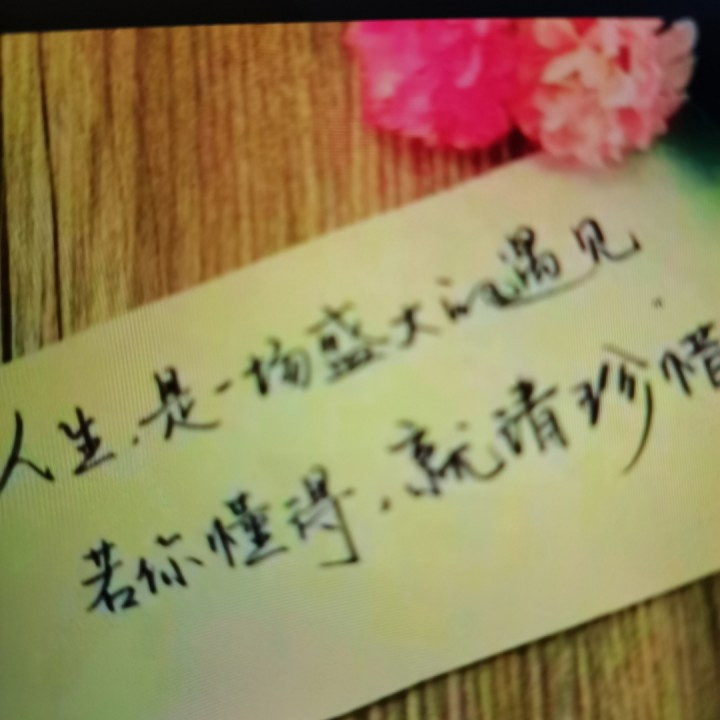 人生,是一场盛大的遇见.
若你懂得,就请珍惜